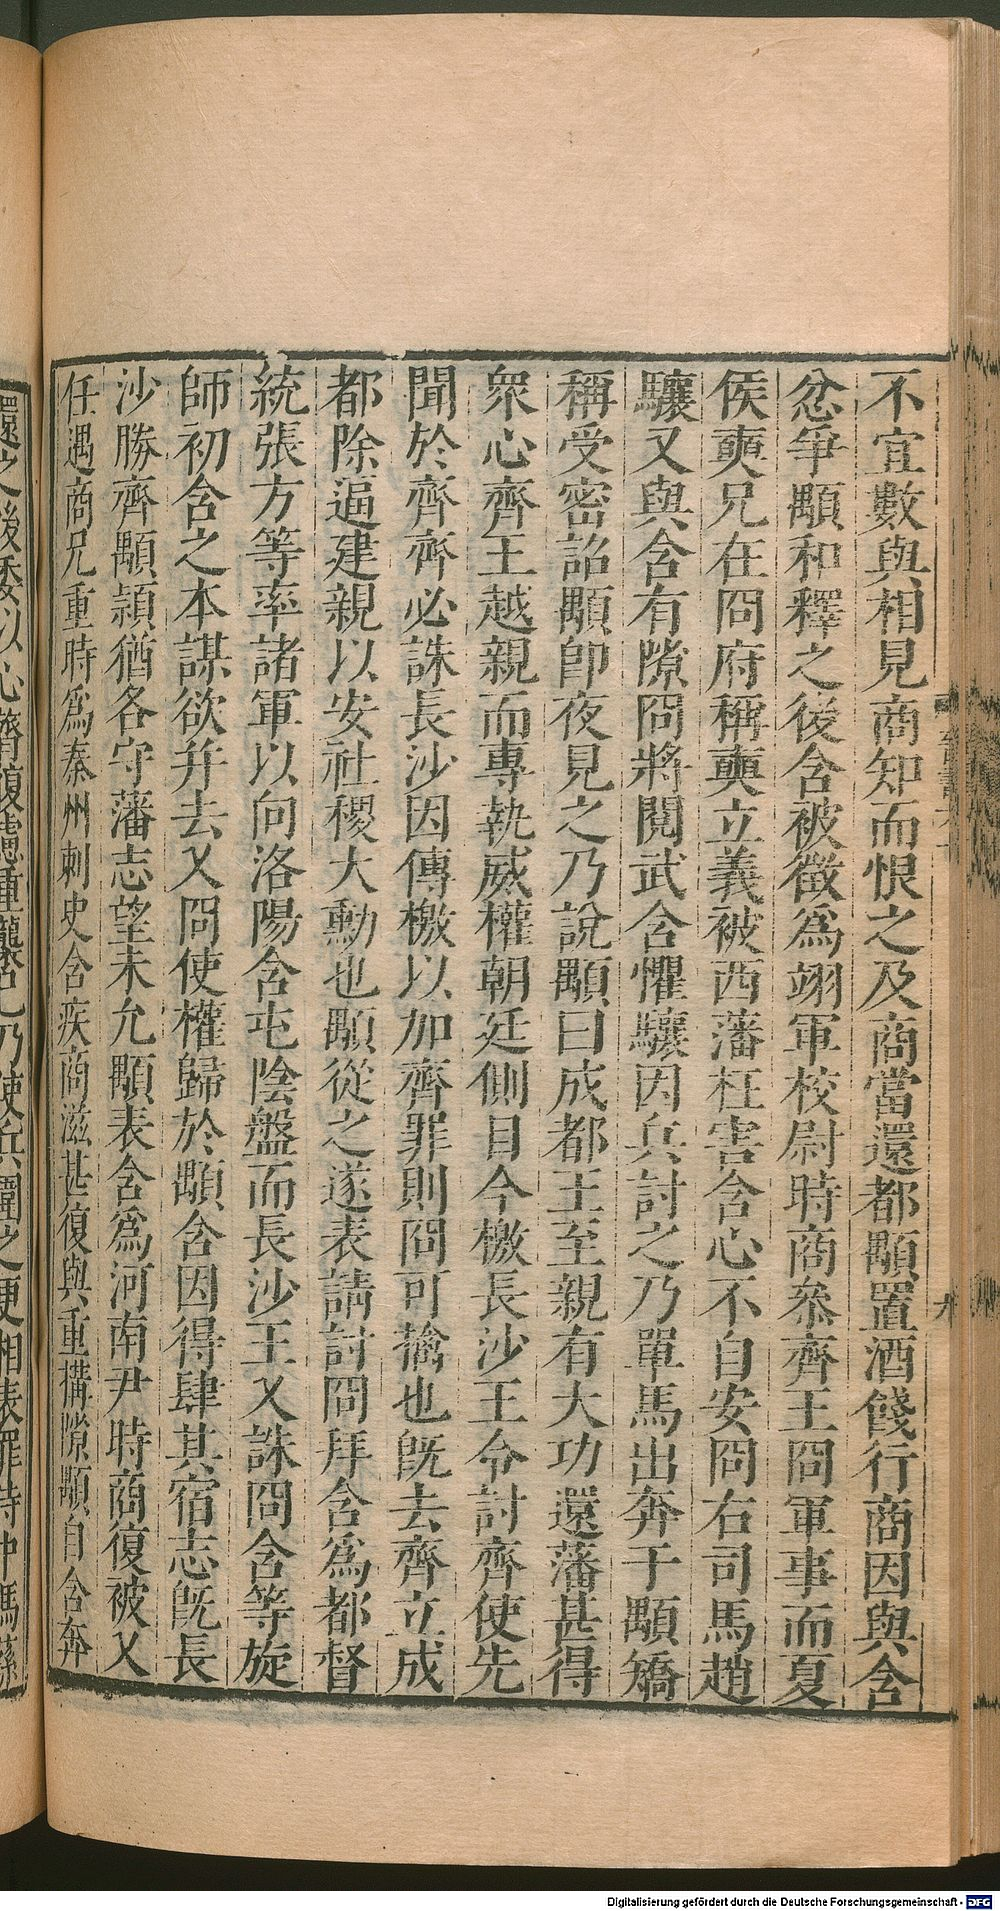 不宜數與相見商知而恨之及商當還都顒置酒餞行商因與含
忿爭顒和釋之後含被徵為翊軍校尉時商叅齊王冏軍事而夏
侯奭兄在冏府稱奭立義被西藩枉害含心不自安冏右司馬趙
驤又與含有隙冏將閱武含懼驤因兵討之乃單馬出奔于顒矯
稱受密詔顒卽夜見之乃說顒曰成都王至親有大功還藩甚得
衆心齊王越親而專執威權朝廷側目今檄長沙王令討齊使先
聞於齊齊必誅長沙因傳檄以加齊罪則冏可擒也旣去齊立成
都除逼建親以安社稷大勳也顒從之遂表請討冏拜含為都督
統張方等率諸軍以向洛陽含屯陰盤而長沙王乂誅冏含等旋
師初含之本謀欲并去乂冏使權歸於顒含因得肆其宿志旣長
沙勝齊顒頴猶各守藩志望未允顒表含為河南尹時商復被乂
任遇商兄重時為秦州刺史含疾商滋甚復與重搆隙顒自含奔
還之後委以心膂復慮重襲己乃使兵圍之更相表罪侍中馮蓀
九
Digitalisierung gefördert durch die Deutsche Forschungsgemeinschaft - DFG